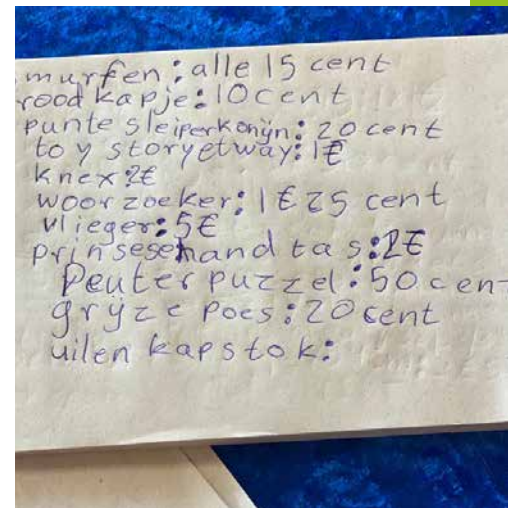 murfen: alle 15 cent
rood kapje: 10 cent
punte sleiperkonijn: 20 cent
toy storyetway: 1€
knex 2€
woorzoeker: 1€ 25 cent
vlieger: 5€
prinsesehandtas: 2€
Peuterpuzzel: 50 cent
grijze poes: 20 cent
uilen kapstok: